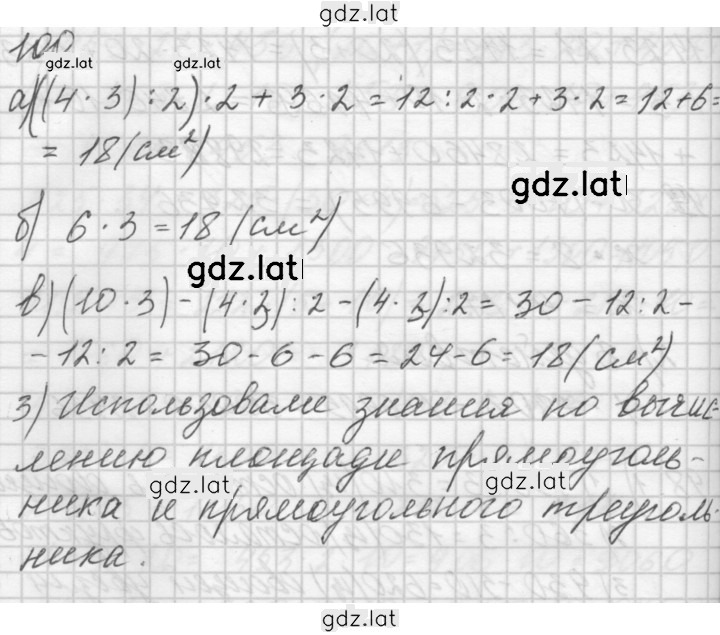 gdz.lat
100
gdz.lat gdz.lat
а) ((4 · 3) : 2) · 2 + 3 · 2 = 12 : 2 · 2 + 3 · 2 = 12 + 6 =
= 18 (см²)
gdz.lat
б) 6 · 3 = 18 (см²)
gdz.lat
в) (10 · 3) - (4 · 3) : 2 - (4 · 3) : 2 = 30 - 12 : 2 -
- 12 : 2 = 30 - 6 - 6 = 24 - 6 = 18 (см²)
3) Использовали знания по вычис-
лению площади прямоуголь-
gdz.lat gdz.lat
ника и прямоугольного треуголь-
ника.
gdz.lat